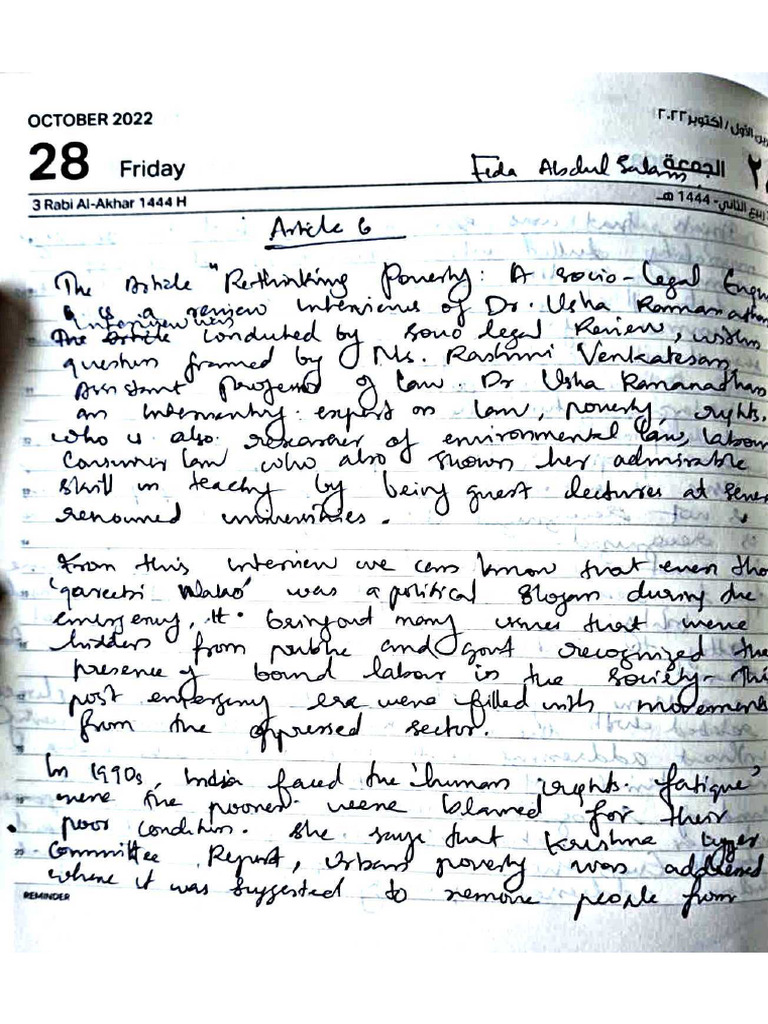 OCTOBER 2022
تشرين الأول / أكتوبر ٢٠٢٢
28 Friday
Fida Abdul Salam
الجمعة
3 Rabi Al-Akhar 1444 H
ربيع الثاني - 1444 هـ
Article 6
The Article "Re-thinking Poverty: A socio-legal Enqu
is a review interviews of Dr. Usha Ramanathan
The Article Interview was conducted by socio legal Review, with
question framed by Ms. Rashmi Venkatesan,
Assistant professor of law. Dr Usha Ramanathan
an expert on law, poverty, rights.
who is also researcher of environmental law, labour
Consumer law who also shown her admirable
skill in teachy by being guest lectures at
renouned universities.
From this interview we can know that even tho
'gareebi hatao' was a political slogan during the
emergency, It bringout many issues that were
hidden from public and govt recognized the
presence of bound labour in the society. This
post emergency era were filled with movements
from the oppressed sector.
In 1990s, India faced the 'human rights fatique'
were the poorer were blamed for their
poor condition. She says that Krishna Iyger
Committee Report, urban poverty was addressed
where it was suggested to remove people from
REMINDER